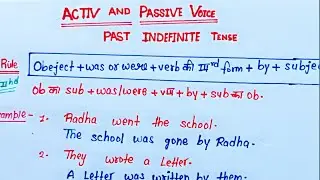 ACTIV AND PASSIVE VOICE
PAST INDEFINITE TENSE
Rule
Obeject + was or were + verb की IIIrd form + by + subje
ob का sub + was/were + vIII + by + sub का ob.
ample-
1. Radha went the school.
The school was gone by Radha.
2. They wrote a Letter.
A Letter was written by them.